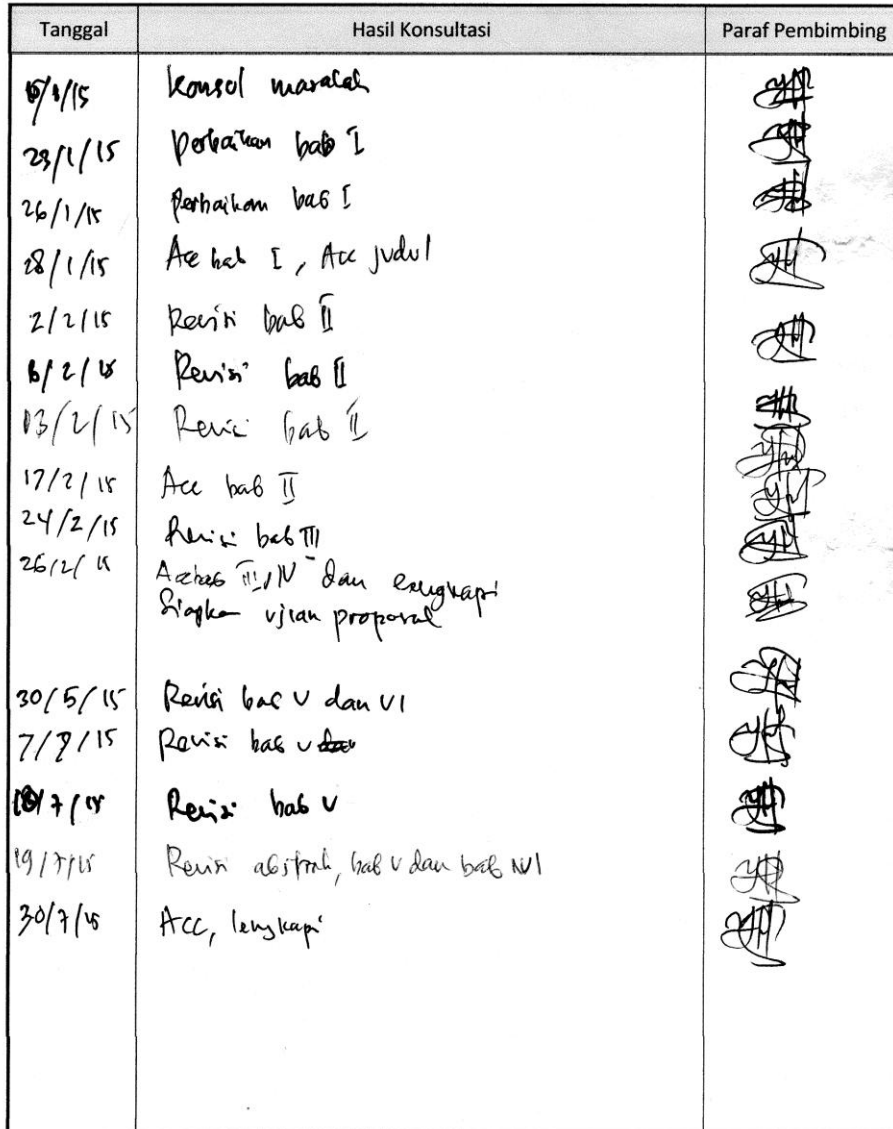 Tanggal Hasil Konsultasi Paraf Pembimbing
/1/15 Konsul masalah
23/1/15 Perbaikan bab I
26/1/15 Perbaikan bab I
28/1/15 Acc bab I, Acc judul
2/2/15 Revisi bab II
6/2/15 Revisi bab II
13/2/15 Revisi bab II
17/2/15 Acc bab II
24/2/15 Revisi bab III
26/2/15 Acc bab III, IV dan lengkapi
Siapkan ujian proposal
30/5/15 Revisi bab V dan VI
7/7/15 Revisi bab V
18/7/15 Revisi bab V
19/7/15 Revisi abstrak, bab V dan bab VI
30/7/15 Acc, lengkapi